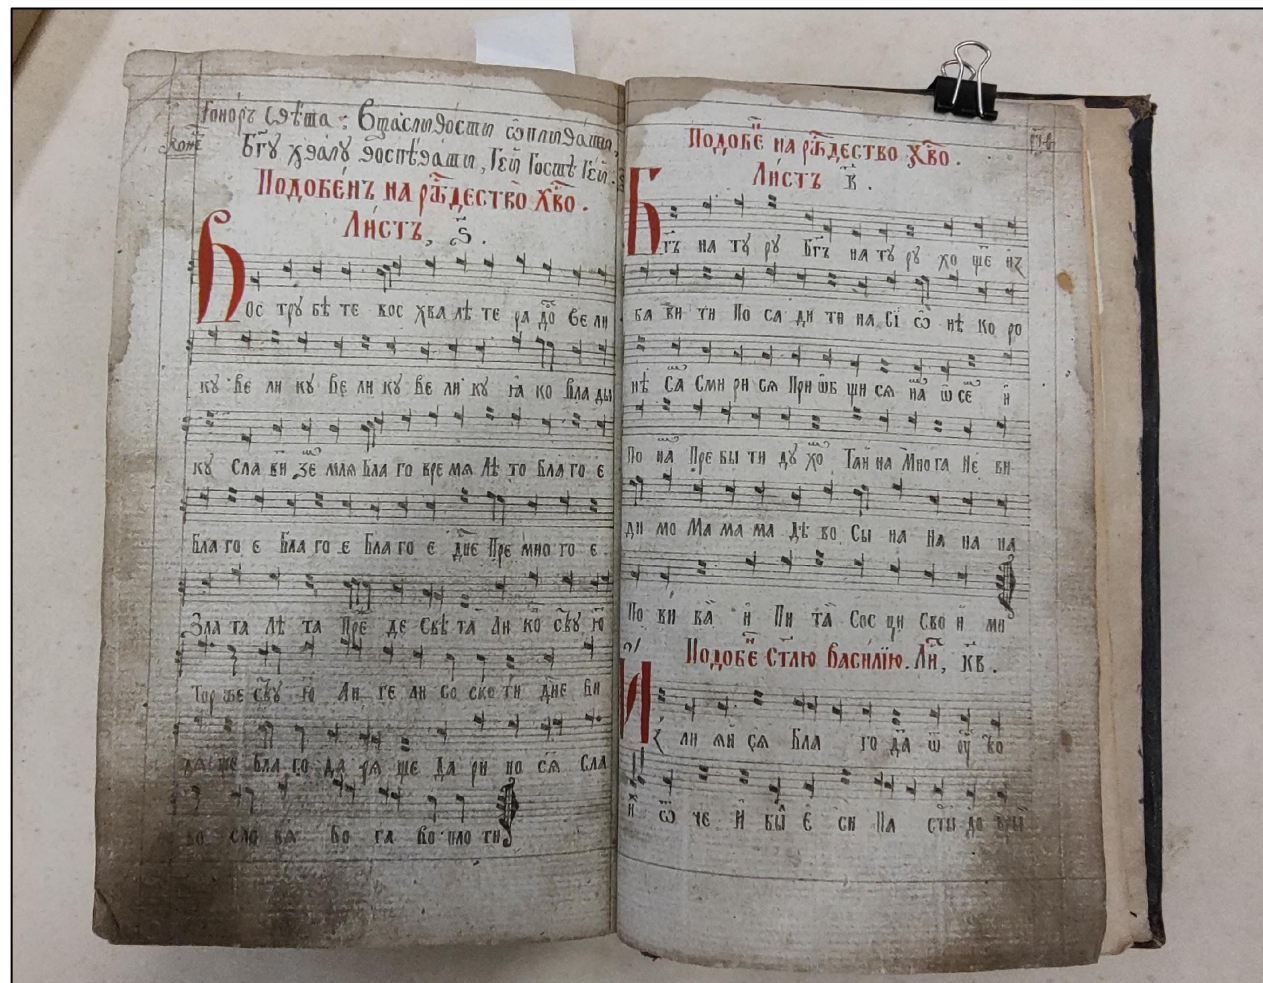 Подобе́нъ на рж҃дество хв҃о.
Ли́стъ, ѕ҃.
Вос трꙋ бѣ те вос хва лѣ те ра до Ве ли
кꙋ Ве ли кꙋ Ве ли кꙋ Ве ли кꙋ ꙗ ко Вла ды
кꙋ Сла ви зе мля Бла го вре мя Лѣ то Бла го е
Бла го е Бла го е Бла го е дн҃е Пре мно го е
Зла та Лѣ та Пре де Свѣ та Ли ко
Тор же Ан ге ли со ско ти дн҃е
ще Бла го да ря ще Да ри но ся Сла
во сло вя Бо га во пло ти
Подобе на рж҃дество хв҃о.
Ли́стъ в҃.
Бг҃ъ на тꙋ рꙋ Бг҃ъ на тꙋ рꙋ хо ще из
ба ви ти По са ди ти на сї ѿ нѣ ко ро
нѣ Са Сми ри ся При ѡб щи ся на ѡ се и
По на Пре бы ти дꙋ хо Тай на Мно га Не ви
ди мо Ма ма ма дѣ во Сы на На на на
По ви ва и Пи та Сос ци Сво и ми
Подобе Ст҃лю Василїю. Ли, кв҃.
Из ли ѧ́й ся Бла го да ѿ ꙋ во
ѿ че И бы Е си Па сты до